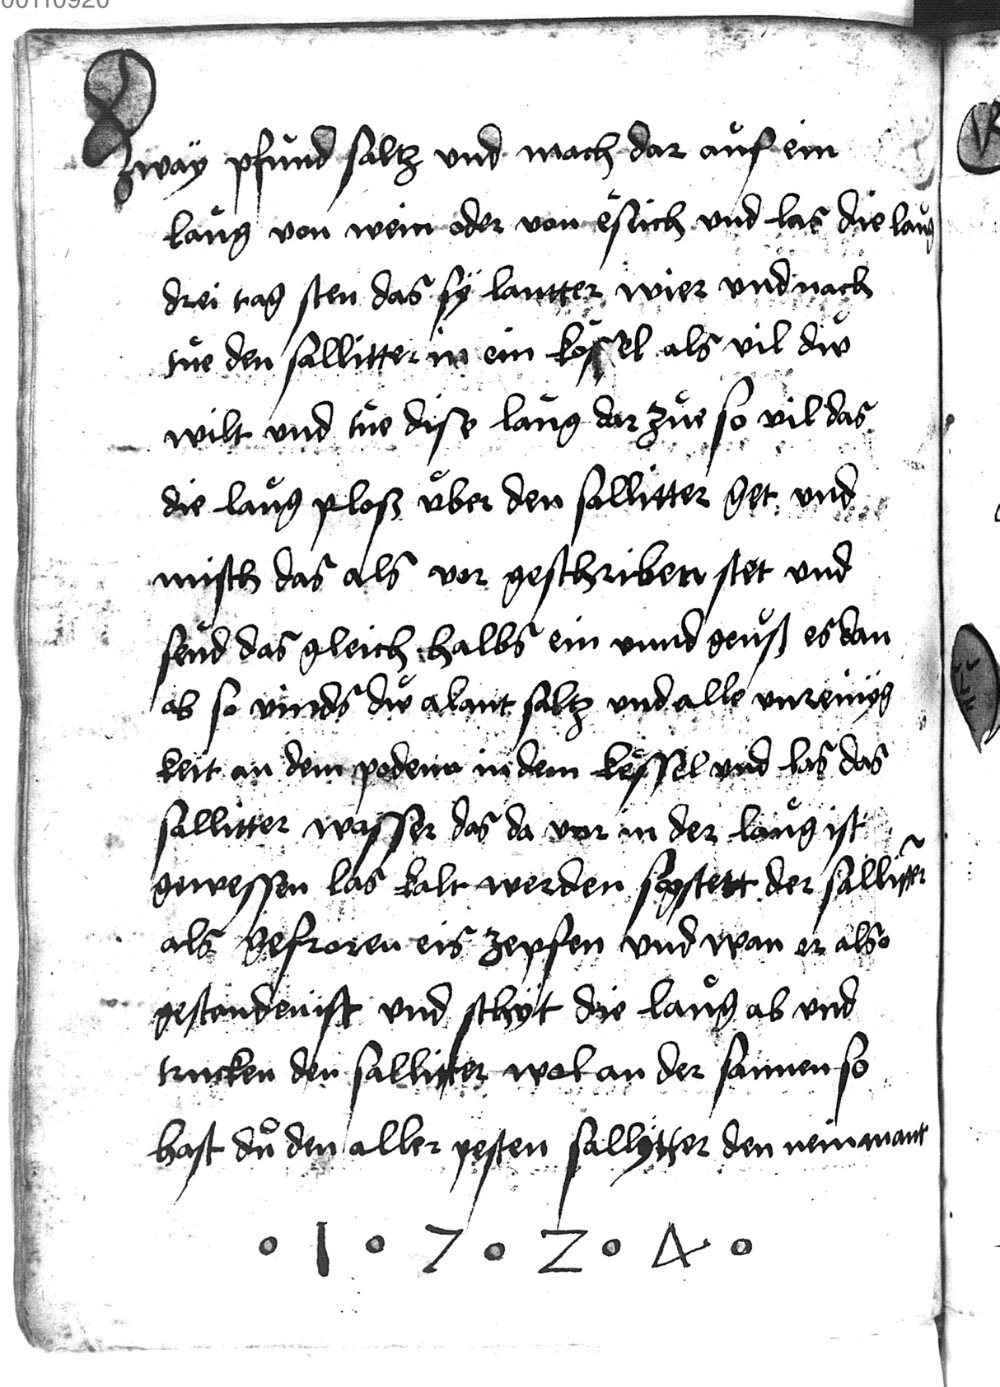 00110920
zway pfund saltz und mach dar auf ein
laug von wein oder von essich und las die laug
drei tag sten das sy lautter wier und nach
tue den sallitter in ein kössel als vil dw
wilt und tue disse laug dar zue so vil das
die laug ploß über den sallitter get und
misch das als vor geschriben stet und
seud das gleich halbs ein unnd geuß es dan
ab so vinds dw alant saltz und alle unreinyg
keit an dem podenn in dem kessel und las das
sallitter wasser das da vor in der laug ist
gewessen las kalt werden so gstett der sallitter
als gefroren eis zepfen und wan er also
gestanden ist und schyt die laug ab und
trucken den sallitter wol an der sannen so
hast du den aller pesten sallytter den neinmant
∘ 1 ∘ 7 ∘ 2 ∘ 4 ∘